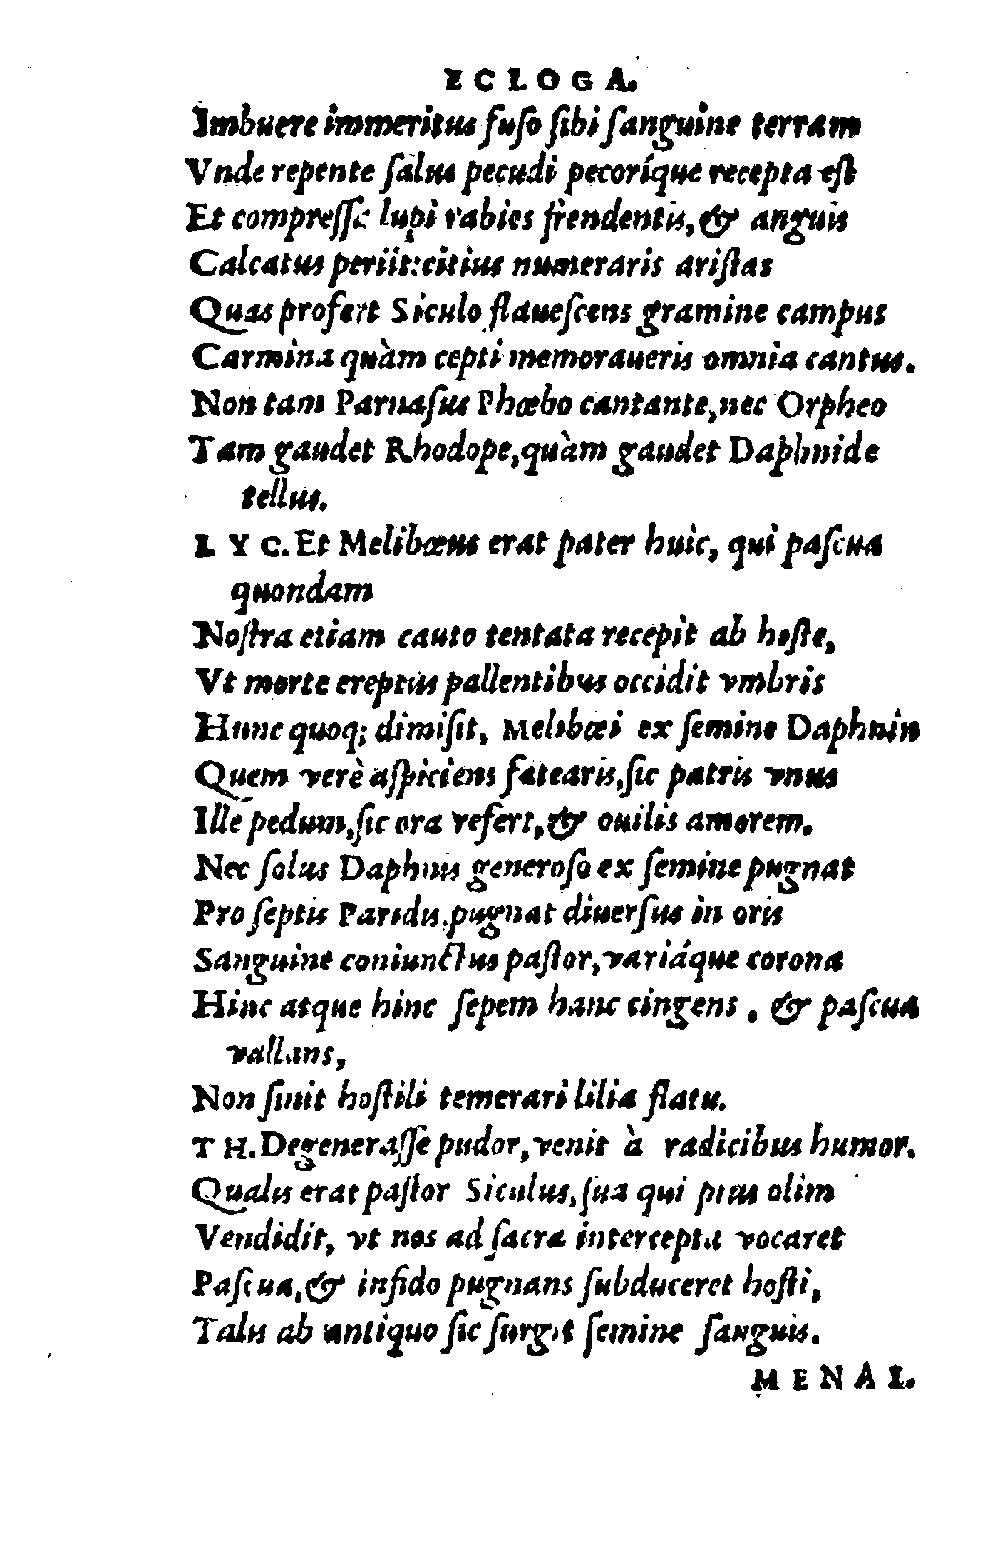 ECLOGA.
Imbuere immeritus fuſo ſibi ſanguine terram
Vnde repente ſalus pecudi pecoríque recepta eſt
Et compreſſe lupi rabies frendentis, & anguis
Calcatus periit: citius numeraris ariſtas
Quas profert Siculo flaueſcens gramine campus
Carmina quàm cepti memoraueris omnia cantus.
Non tam Parnaſus Phœbo cantante, nec Orpheo
Tam gaudet Rhodope, quàm gaudet Daphnide
tellus.
LYC. Et Melibœus erat pater huic, qui paſcua
quondam
Noſtra etiam cauto tentata recepit ab hoſte,
Vt morte ereptus pallentibus occidit vmbris
Hunc quoq; dimiſit, Melibœi ex ſemine Daphnin
Quem verè aſpiciens fatearis, ſic patris vnus
Ille pedum, ſic ora refert, & ouilis amorem.
Nec ſolus Daphnis generoſo ex ſemine pugnat
Pro ſeptis Paridis. pugnat diuerſus in oris
Sanguine coniunctus paſtor, variáque corona
Hinc atque hinc ſepem hanc cingens, & paſcua
vallans,
Non ſinit hoſtili temerari lilia flatu.
TH. Degeneraſſe pudor, venit à radicibus humor.
Qualis erat paſtor Siculus, ſua qui pius olim
Vendidit, vt nos ad ſacra intercepta vocaret
Paſcua, & infido pugnans ſubduceret hoſti,
Talis ab antiquo ſic ſurgit ſemine ſanguis.
MENAL.